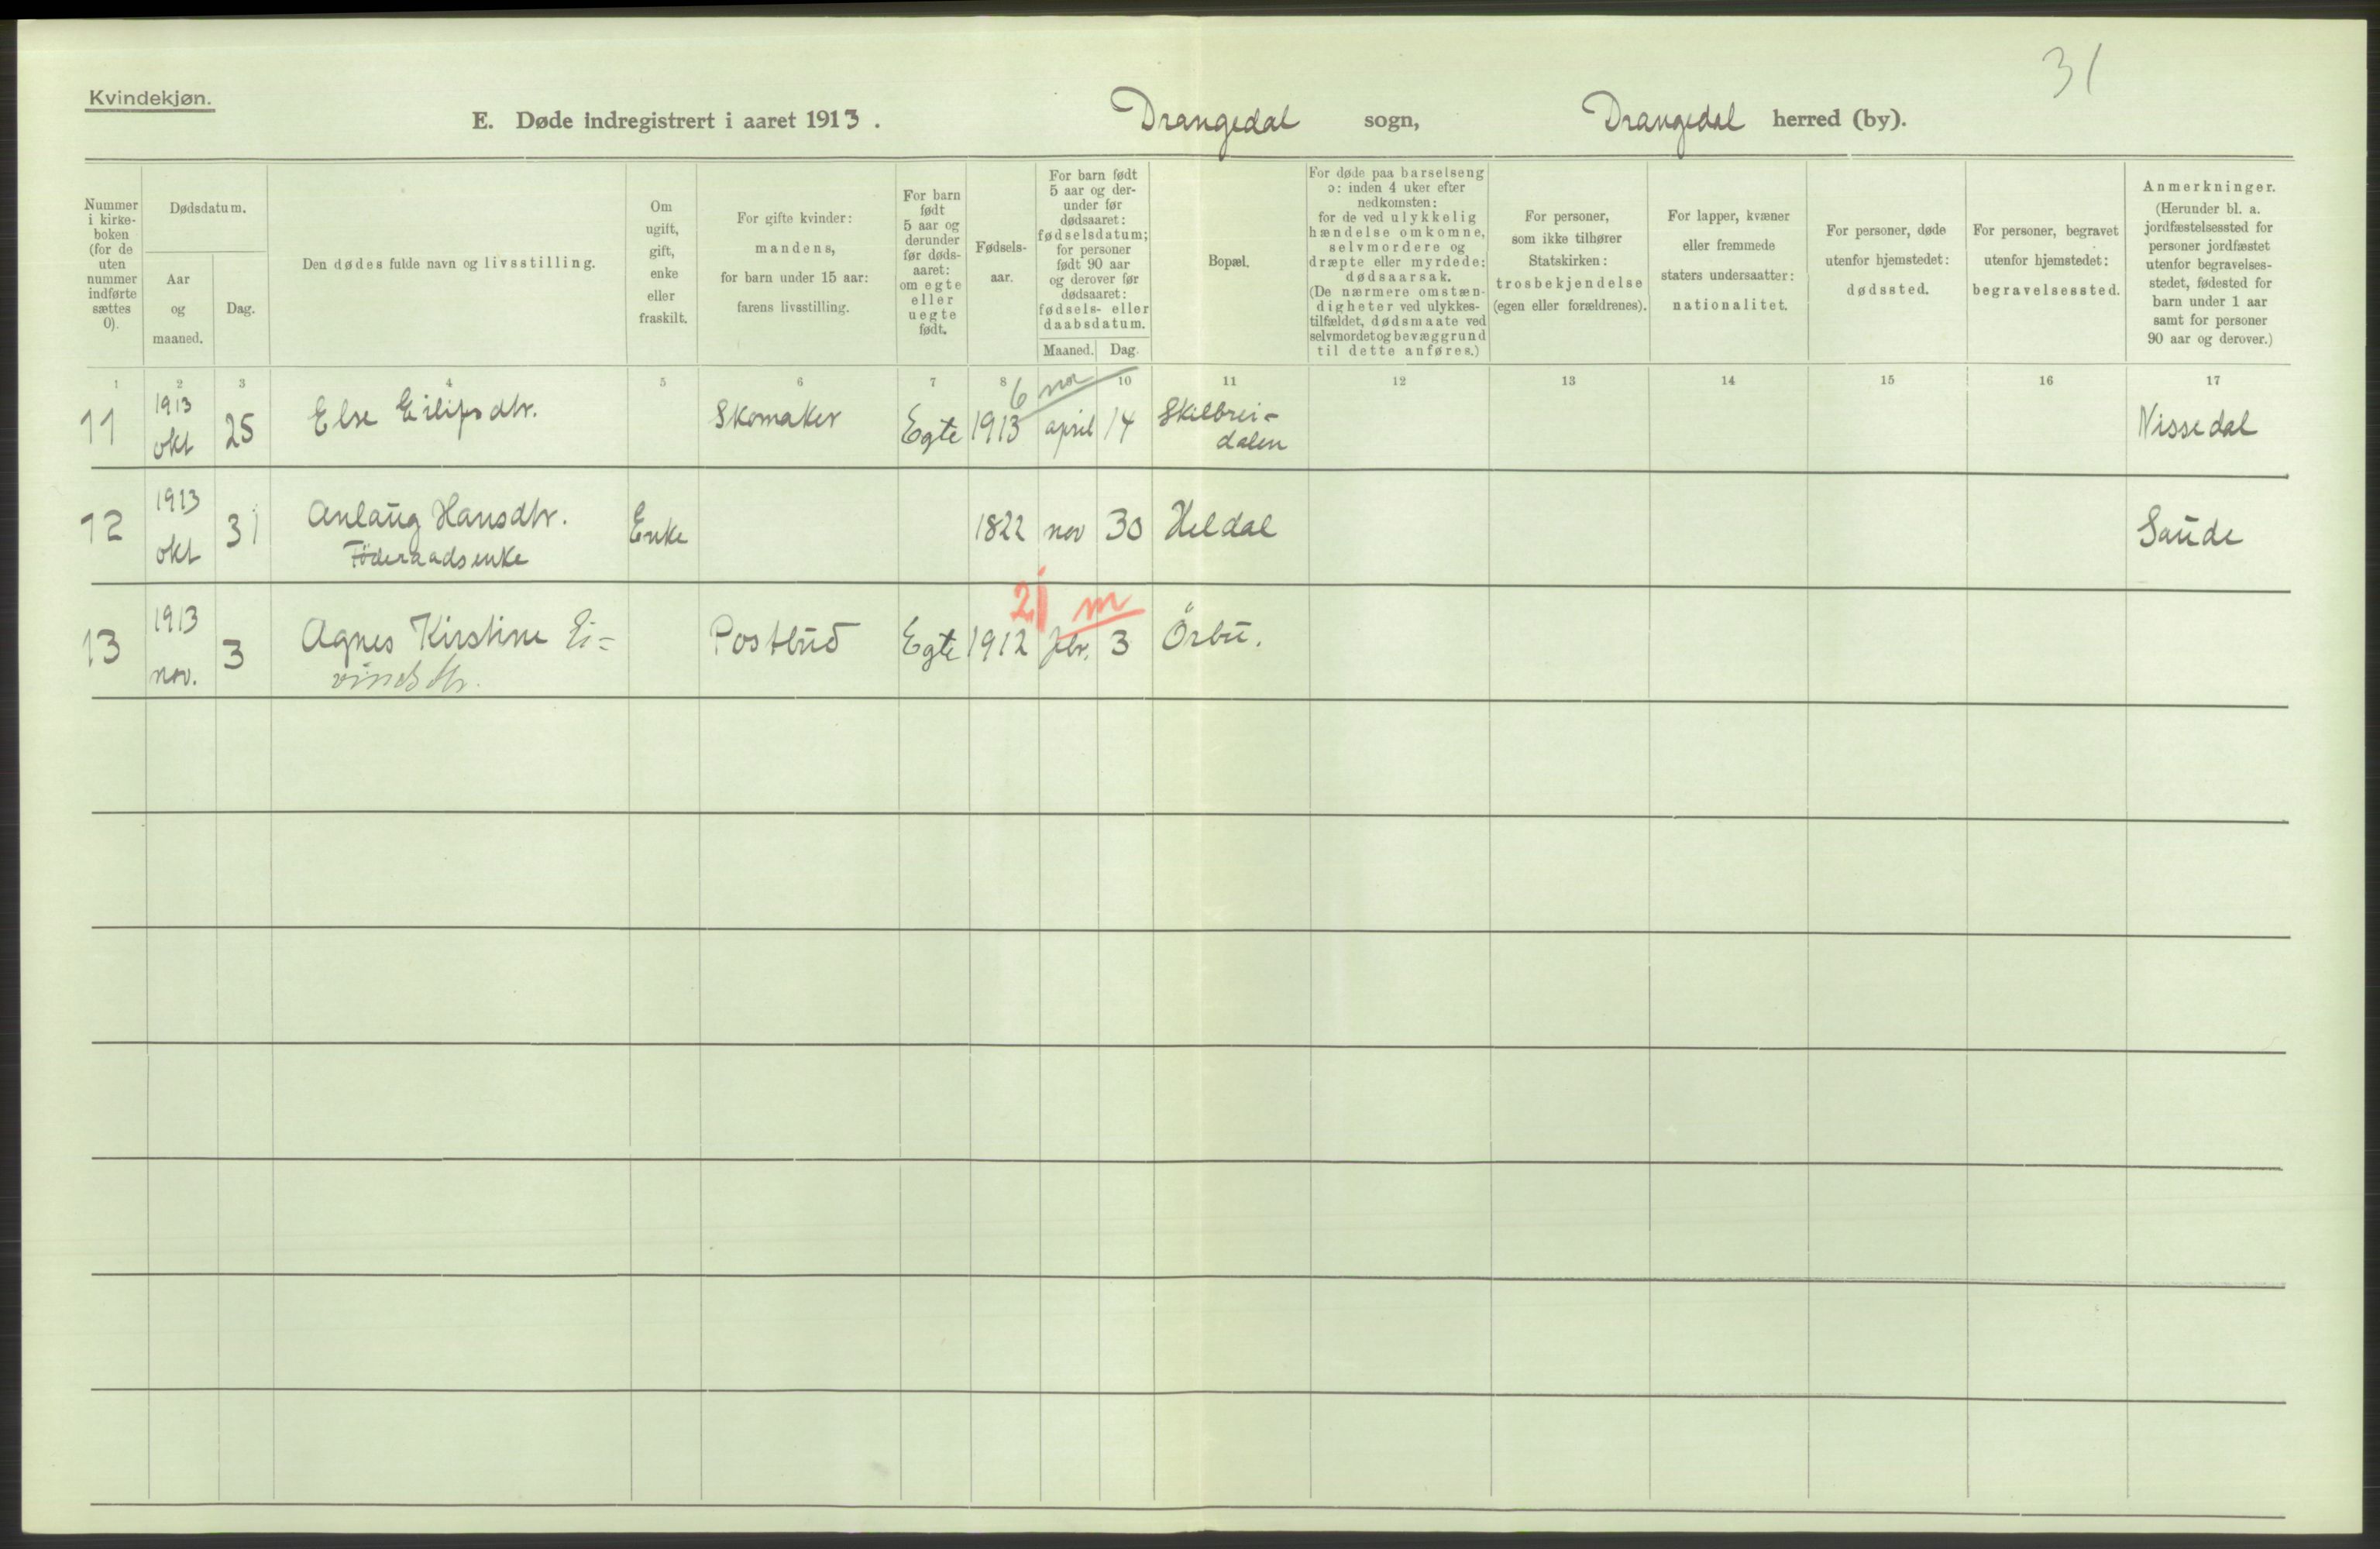 31
Kvindekjøn.
E. Døde indregistrert i aaret 1913. Drangedal sogn, Drangedal herred (by).
Nummer
i kirke-
boken
(for de
uten
nummer
indførte
sættes
0).
Dødsdatum.
Aar
og
maaned.
Dag.
Den dødes fulde navn og livsstilling.
Om
ugift,
gift,
enke
eller
fraskilt.
For gifte kvinder:
mandens,
for barn under 15 aar:
farens livsstilling.
For barn
født
5 aar og
derunder
før døds-
aaret:
om egte
eller
uegte
født.
Fødsels-
aar.
For barn født
5 aar og der-
under før
dødsaaret:
fødselsdatum;
for personer
født 90 aar
og derover før
dødsaaret:
fødsels- eller
daabsdatum.
Maaned. Dag.
Bopæl.
For døde paa barselseng
ɔ: inden 4 uker efter
nedkomsten:
for de ved ulykkelig
hændelse omkomne,
selvmordere og
dræpte eller myrdede:
dødsaarsak.
(De nærmere omstæn-
digheter ved ulykkes-
tilfældet, dødsmaate ved
selvmordet og bevæggrund
til dette anføres.)
For personer,
som ikke tilhører
Statskirken:
trosbekjendelse
(egen eller forældrenes).
For lapper, kvæner
eller fremmede
staters undersaatter:
nationalitet.
For personer, døde
utenfor hjemstedet:
dødssted.
For personer, begravet
utenfor hjemstedet:
begravelsessted.
Anmerkninger.
(Herunder bl. a.
jordfæstelsessted for
personer jordfæstet
utenfor begravelses-
stedet, fødested for
barn under 1 aar
samt for personer
90 aar og derover.)
1 2 3 4 5 6 7 8 10 11 12 13 14 15 16 17
11 1913 okt 25 Else Eilifsdtr. Skomaker Egte 1913 april 14 Skilbrei-
dalen Nissedal
12 1913 okt 31 Anlaug Hansdtr. Enke 1822 nov 30 Heldal Saude
Föderaadsenke
21 m
13 1913 nov. 3 Agnes Kirstine Ei- Postbud Egte 1912 febr. 3 Örbu.
vindsdtr.